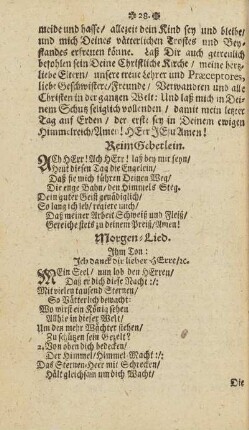 28.
meide und hasse / allezeit dein Kind sey und bleibe /
und mich Deines vätterlichen Trostes und Bey-
standes erfreuen könne. Laß Dir auch getreulich
befohlen sein Deine Christliche Kirche / meine hertz-
liebe Eltern / unsere treue Lehrer und Præceptores,
liebe Geschwistere / Freunde / Verwandten und alle
Christen in der gantzen Welt: Und laß mich in Dei-
nem Schutz seliglich vollenden / damit mein letzter
Tag auf Erden / der erste sey in Deinem ewigen
Himmelreich / Ame! HErr JEsu Amen!
Reim-Gebetlein.
ACh HErr! Ach HErr! laß bey mir seyn /
Heut diesen Tag die Engelein /
Daß sie mich führen Deinen Weg /
Die enge Bahn / den Himmels Steg.
Dein guter Geist genädiglich /
So lang ich leb / regiere mich /
Daß meiner Arbeit Schweiß und Fleiß /
Gereiche stets zu deinem Preiß / Amen!
Morgen-Lied.
Jhm Ton:
Jch danck dir lieber HErre / &c.
MEin Seel / nun lob den HErren /
Daß er dich diese Nacht :/:
Mit vielen tausend Sternen /
So Vätterlich bewacht:
Wo wirst ein König sehen
Allhie in dieser Welt /
Um den mehr Wächter stehen /
Zu schützen sein Gezelt?
2. Von oben dich bedecken /
Der Himmel / Himmel-Macht :/:
Das Sternen-Heer mit Schrecken /
Hält gleichsam um dich Wacht /
Die